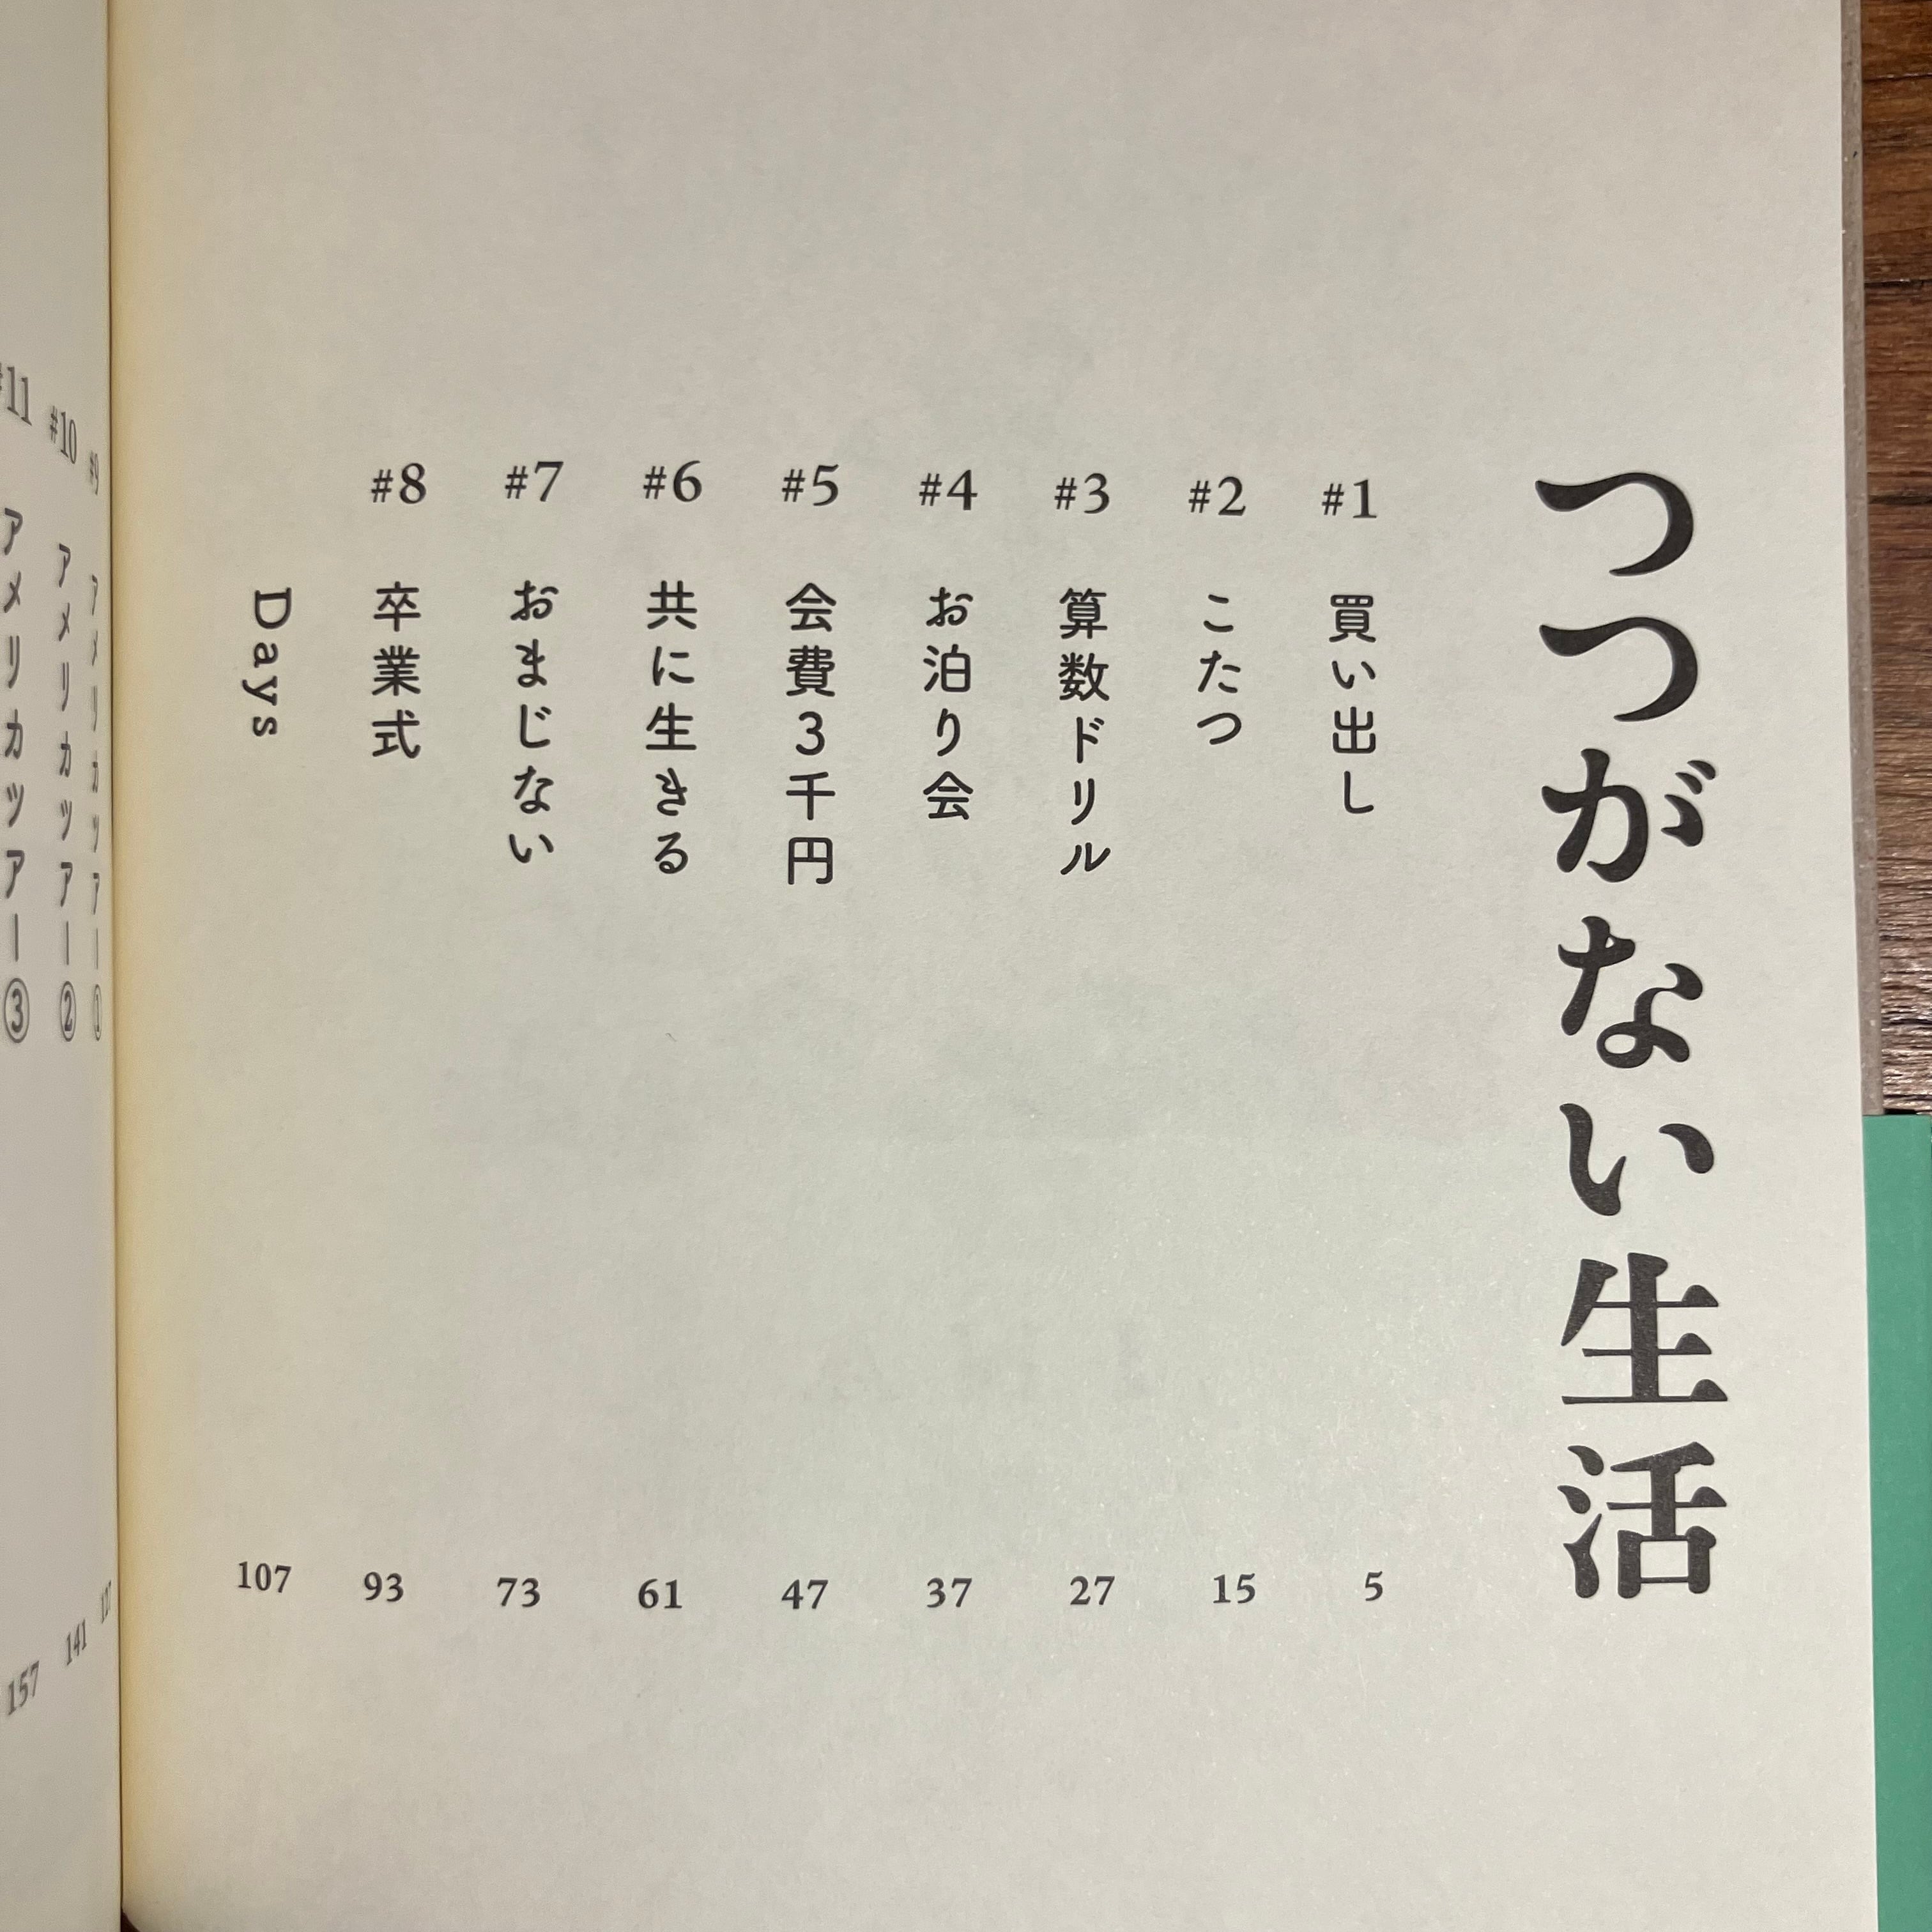 つつがない生活
#1 買い出し 5
#2 こたつ 15
#3 算数ドリル 27
#4 お泊り会 37
#5 会費3千円 47
#6 共に生きる 61
#7 おまじない 73
#8 卒業式 93
Days 107
#9 アメリカツアー① 127
#10 アメリカツアー② 141
#11 アメリカツアー③ 157